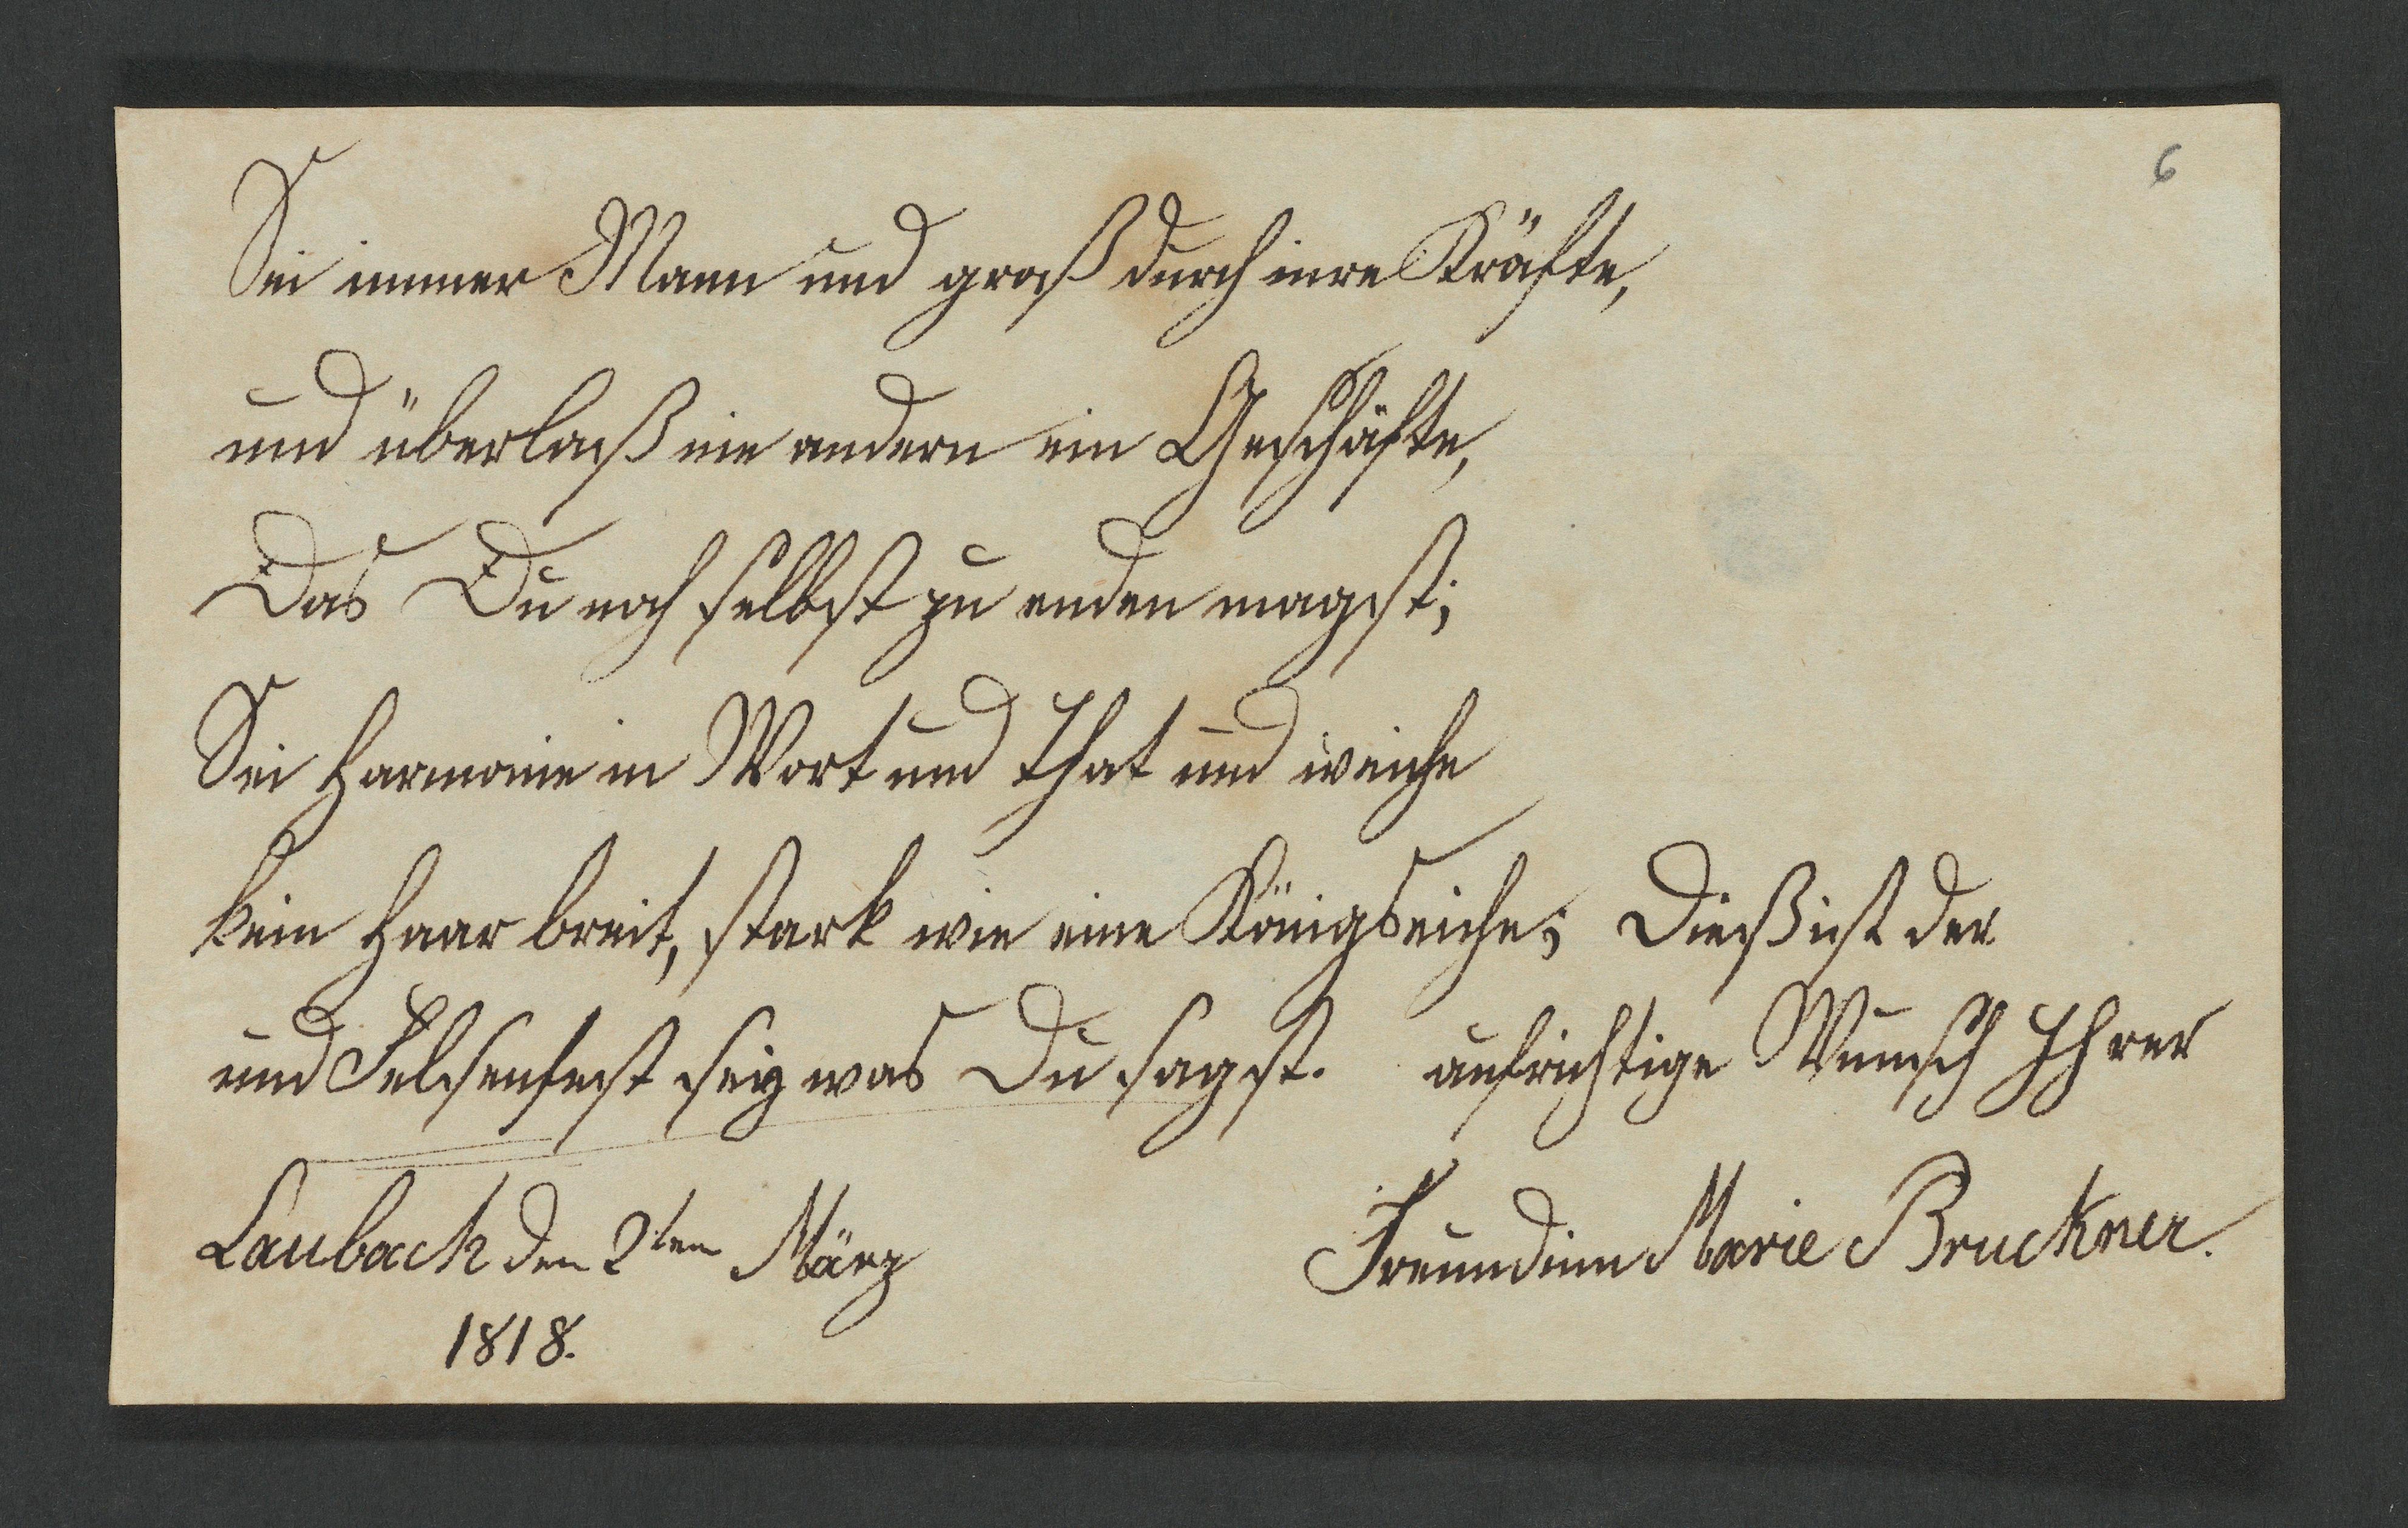 6
Sei immer Mann und groß durch inre Kräfte,
und überlaß nie andern ein Geschäfte,
Das Du noch selbst zu enden magst;
Sei Harmonie in Wort und That und weiche
kein Haar breit, stark wie eine Königseiche;
und Felsenfest sey was Du sagst.
Dießist der
aufrichtige Wunsch Ihrer
Freundinn Marie Bruckner.
Laubach den 2ten März
1818.